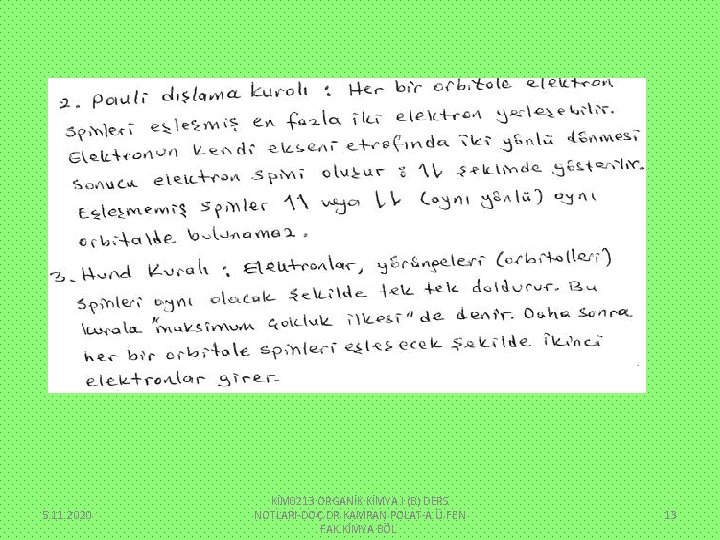 2. Pauli dışlama kuralı : Her bir orbitale elektron
spinleri eşleşmiş en fazla iki elektron yerleşebilir.
Elektronun kendi ekseni etrafında iki yönlü dönmesi
sonucu elektron spini oluşur : ↿⇂ şeklinde gösterilir.
Eşleşmemiş spinler ↿↿ veya ⇂⇂ (aynı yönlü) aynı
orbitalde bulunamaz.
3. Hund Kuralı : Elektronlar, yörüngeleri (orbitalleri)
spinleri aynı olacak şekilde tek tek doldurur. Bu
kurala "maksimum çokluk ilkesi" de denir. Daha sonra
her bir orbitale spinleri eşleşecek şekilde ikinci
elektronlar girer.
5.11.2020
KİM0213 ORGANİK KİMYA I (B) DERS
NOTLARI-DOÇ.DR.KAMRAN POLAT-A.Ü.FEN
FAK.KİMYA BÖL
13